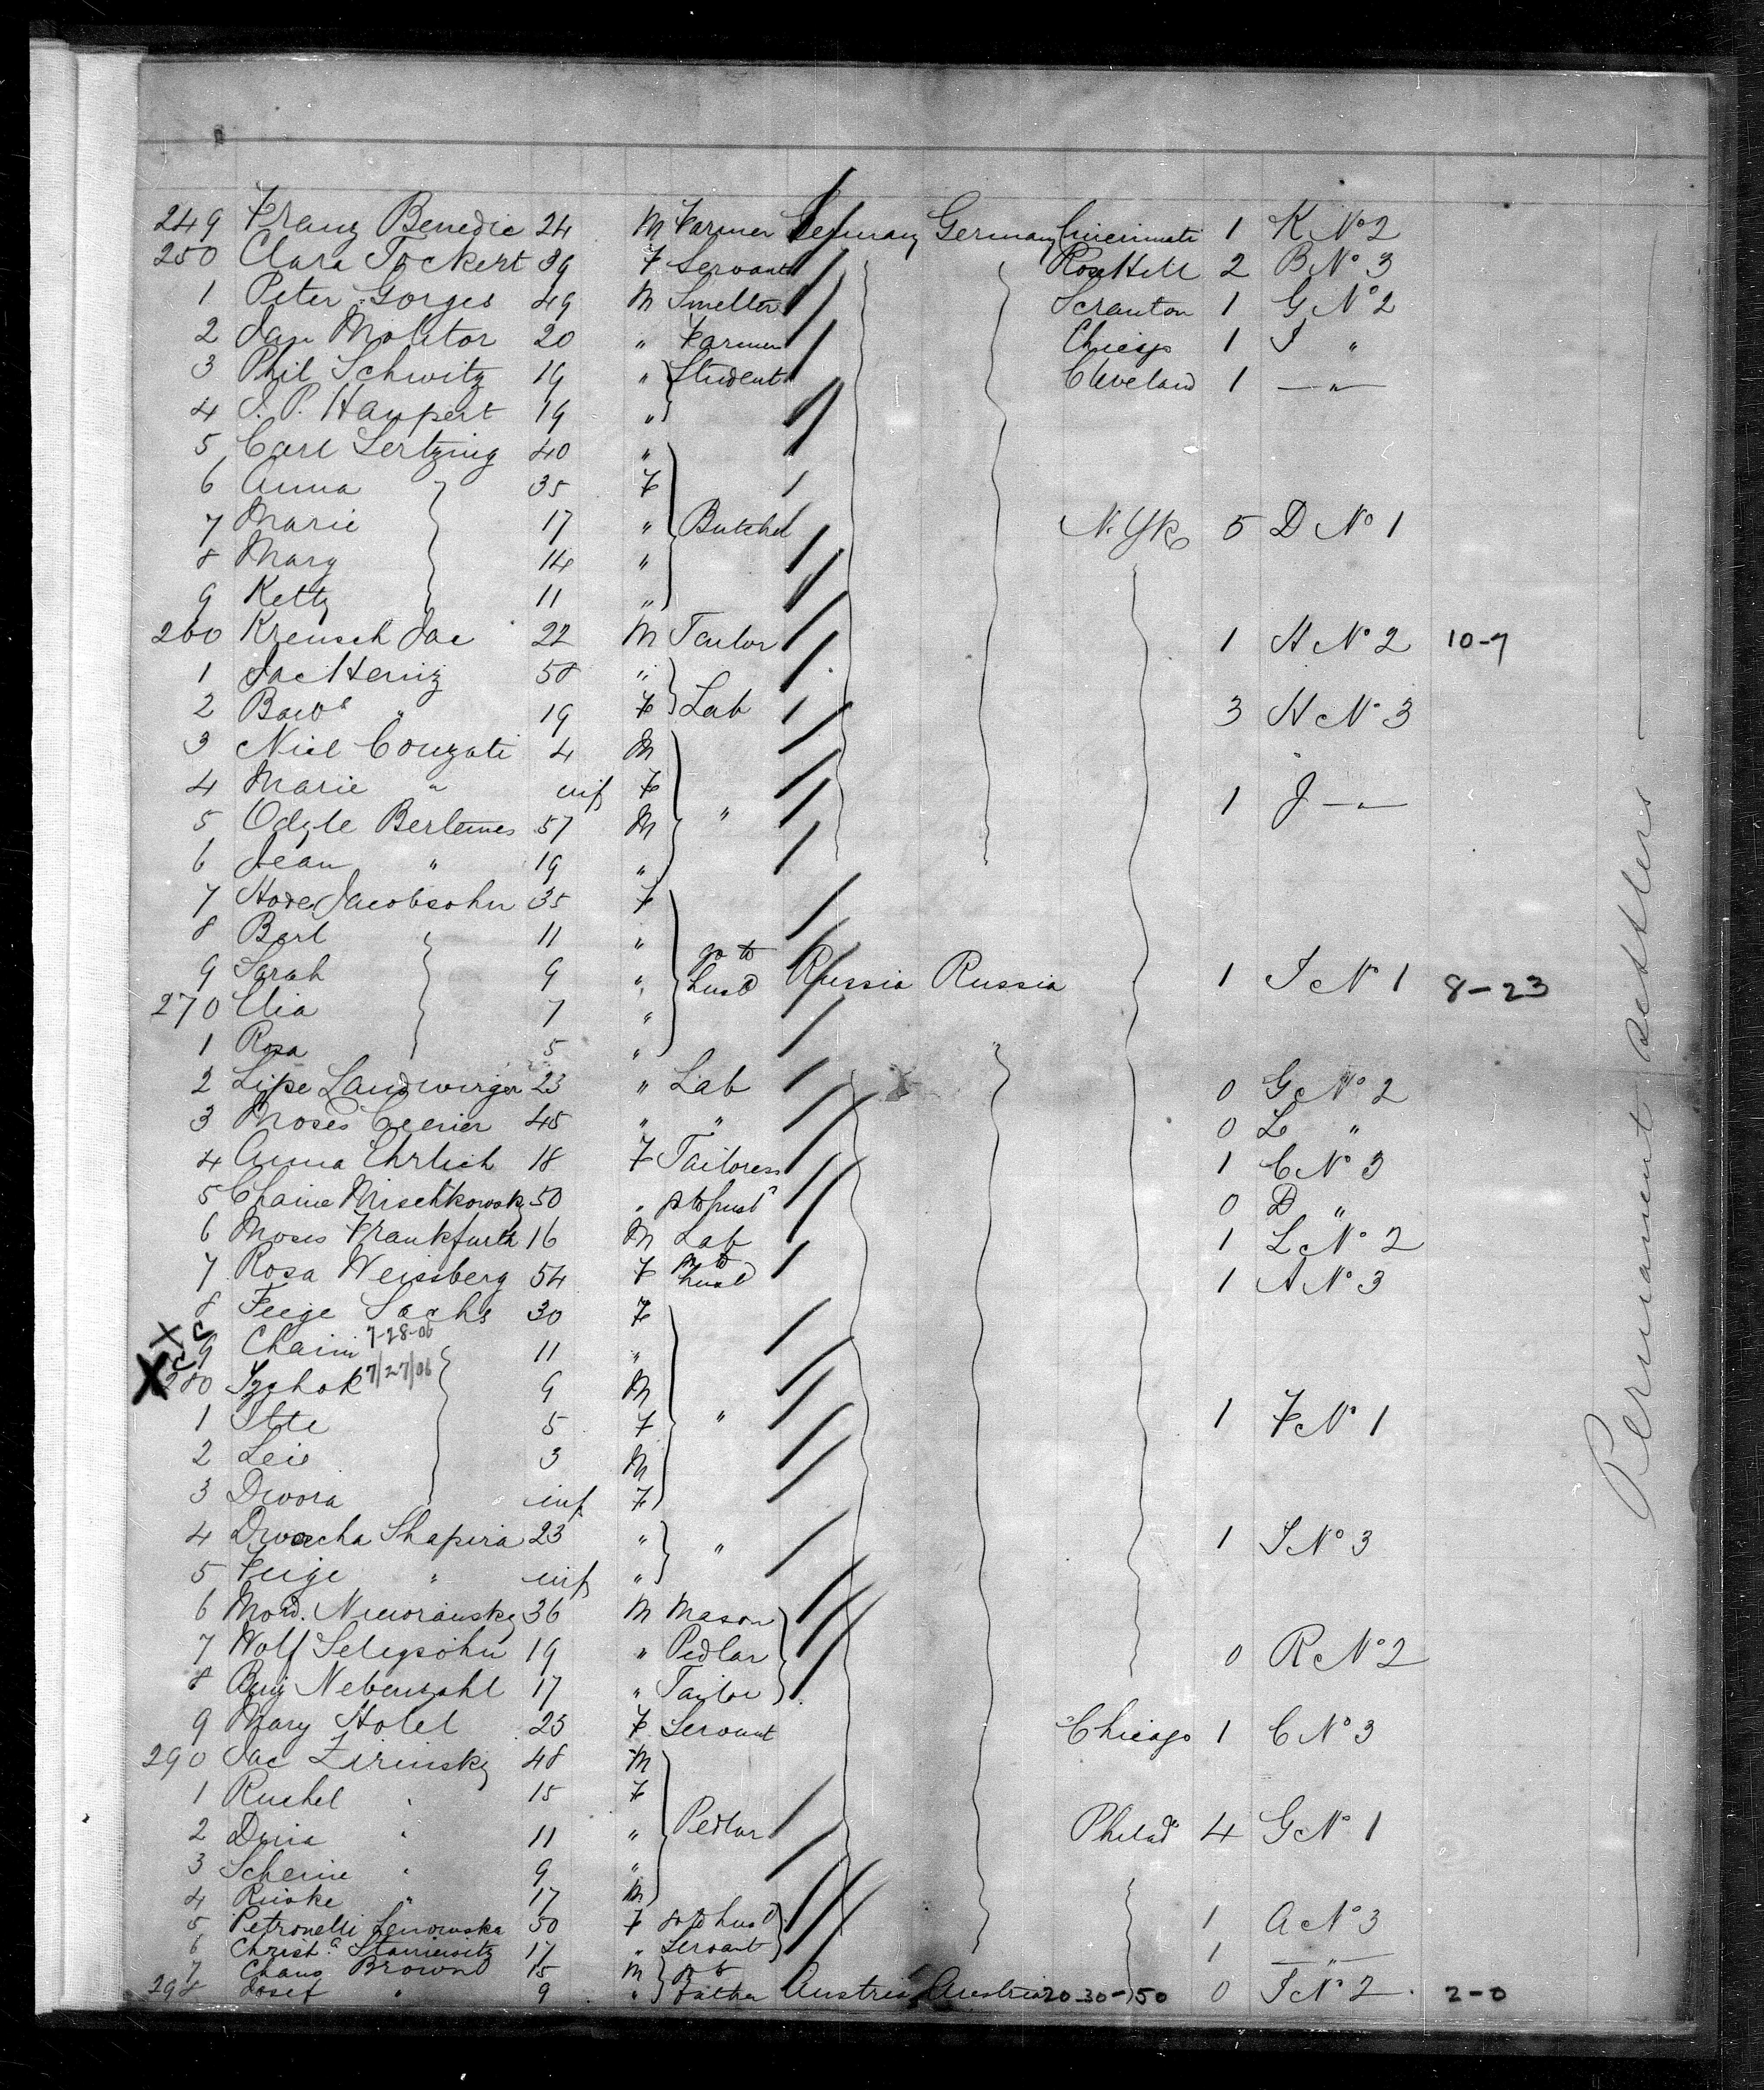 249 Franz Benedic 24 M Farmer Germany Germany Cincinnati 1 K No 2
250 Clara Tockert 39 F Servant Rose Hill 2 B No 3
1 Peter Gorges 49 M Smelter Scranton 1 G No 2
2 Jan Molitor 20 " Farmer Chicago 1 J "
3 Phil Schwitz 19 " Student Cleveland 1 — " —
4 J. P. Haupert 19 "
5 Carl Sertznig 40 "
6 Anna 35 F
7 Marie 17 " Butcher N. Yk 5 D No 1
8 Mary 14 "
9 Ketty 11 "
260 Kreusch Jac 22 M Tailor 1 H No 2 10-7
1 Jac Heinz 58 "
2 Barb " 19 F Lab 3 H No 3
3 Nicl Couzati 4 M
4 Marie " inf F 1 J — " —
5 Odyle Berlemes 57 M "
6 Jean " 19 "
7 Hode Jacobsohn 35 F
8 Berl 11 "
9 Sarah 9 " go to husd Russia Russia 1 I No 1 8-23
270 Elia 7 "
1 Rosa 5 "
2 Lipe Landwirger 23 " Lab 0 G No 2
3 Moses 45 " " 0 L "
4 Anna Ehrlich 18 F Tailoress 1 C No 3
5 Chaine Mischkowsky 50 " 0 D "
6 Moses Frankfurth 16 M Lab 1 L No 2
7 Rosa Weissberg 54 F go to husd 1 A No 3
8 Feige Sachs 30 F
X C 9 Chaim 7-28-06 11 "
X C 280 Izchok 7/27/06 9 M
1 Itte 5 F " 1 F No 1
2 Leie 3 M
3 Dwora inf F
4 Dwacha Shapira 23 " " 1 I No 3
5 Feige " inf "
6 Mord. 36 M Mason
7 Wolf Seligsohn 19 " Pedlar 0 R No 2
8 Benj Nebenzahl 17 " Tailor
9 Mary Hotel 23 F Servant Chicago 1 C No 3
290 Jac Zirinsky 48 M
1 Ruchel " 15 F
2 " 11 " Pedlar Philad 4 G No 1
3 Scheine " 9 "
4 " 17 M
5 Petronelli 50 F go to husd 1 A No 3
6 17 " Servant 1 — " —
7 Brown 15 M go to
298 Josef " 9 " Father Austria Austria 20-30-150 0 I No 2 2-0
Permanent Settlers